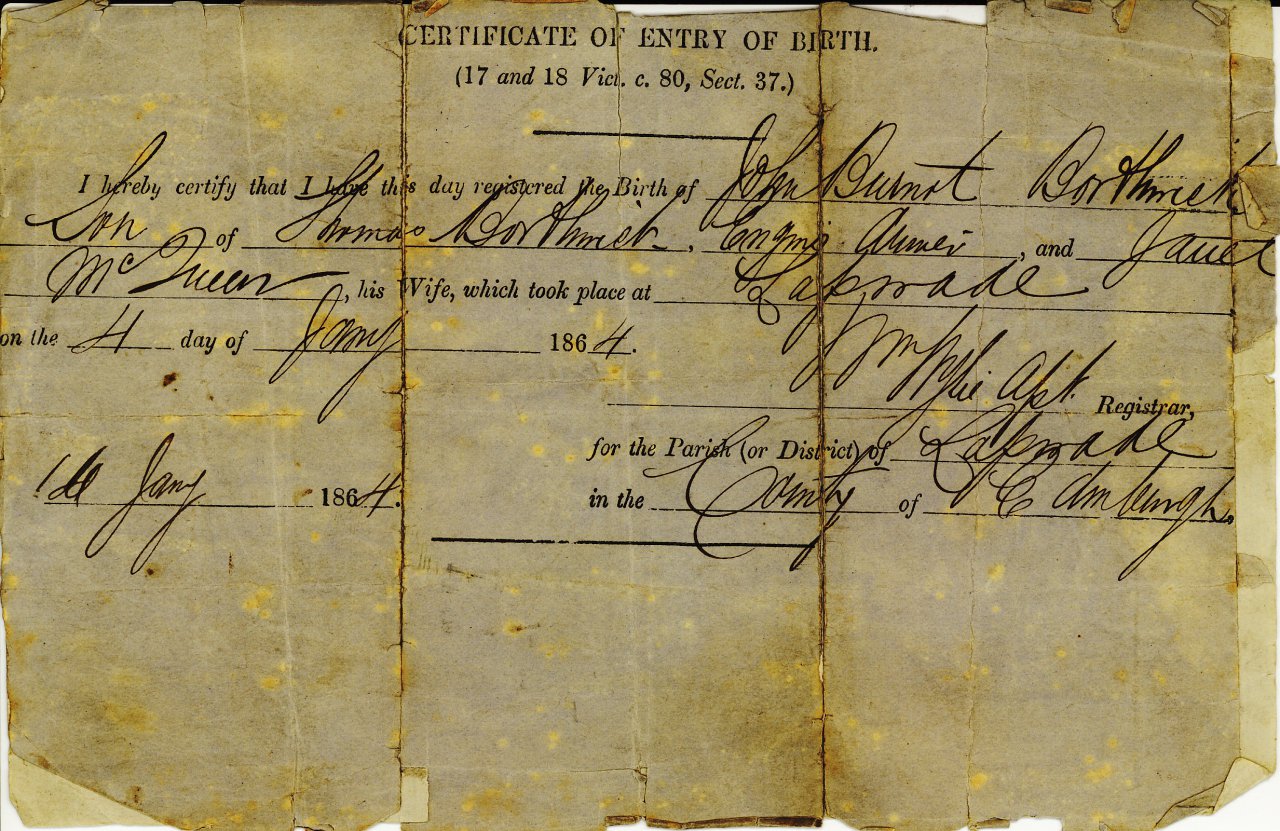 CERTIFICATE OF ENTRY OF BIRTH.
(17 and 18 Vict. c. 80, Sect. 37.)
I hereby certify that I have this day registered the Birth of John Burnet Borthwick
Son of Thomas Borthwick, Engine, and Janet
McQueen, his Wife, which took place at Lasswade
on the 4 day of Jany 1864.
Wm Wylie Asst. Registrar,
for the Parish (or District) of Lasswade
16 Jany 1864. in the County of Edinburgh.